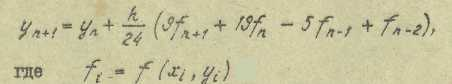 yₙ₊₁ = yₙ + h/24 (9fₙ₊₁ + 19fₙ − 5fₙ₋₁ + fₙ₋₂),
где fᵢ = f(xᵢ, yᵢ)